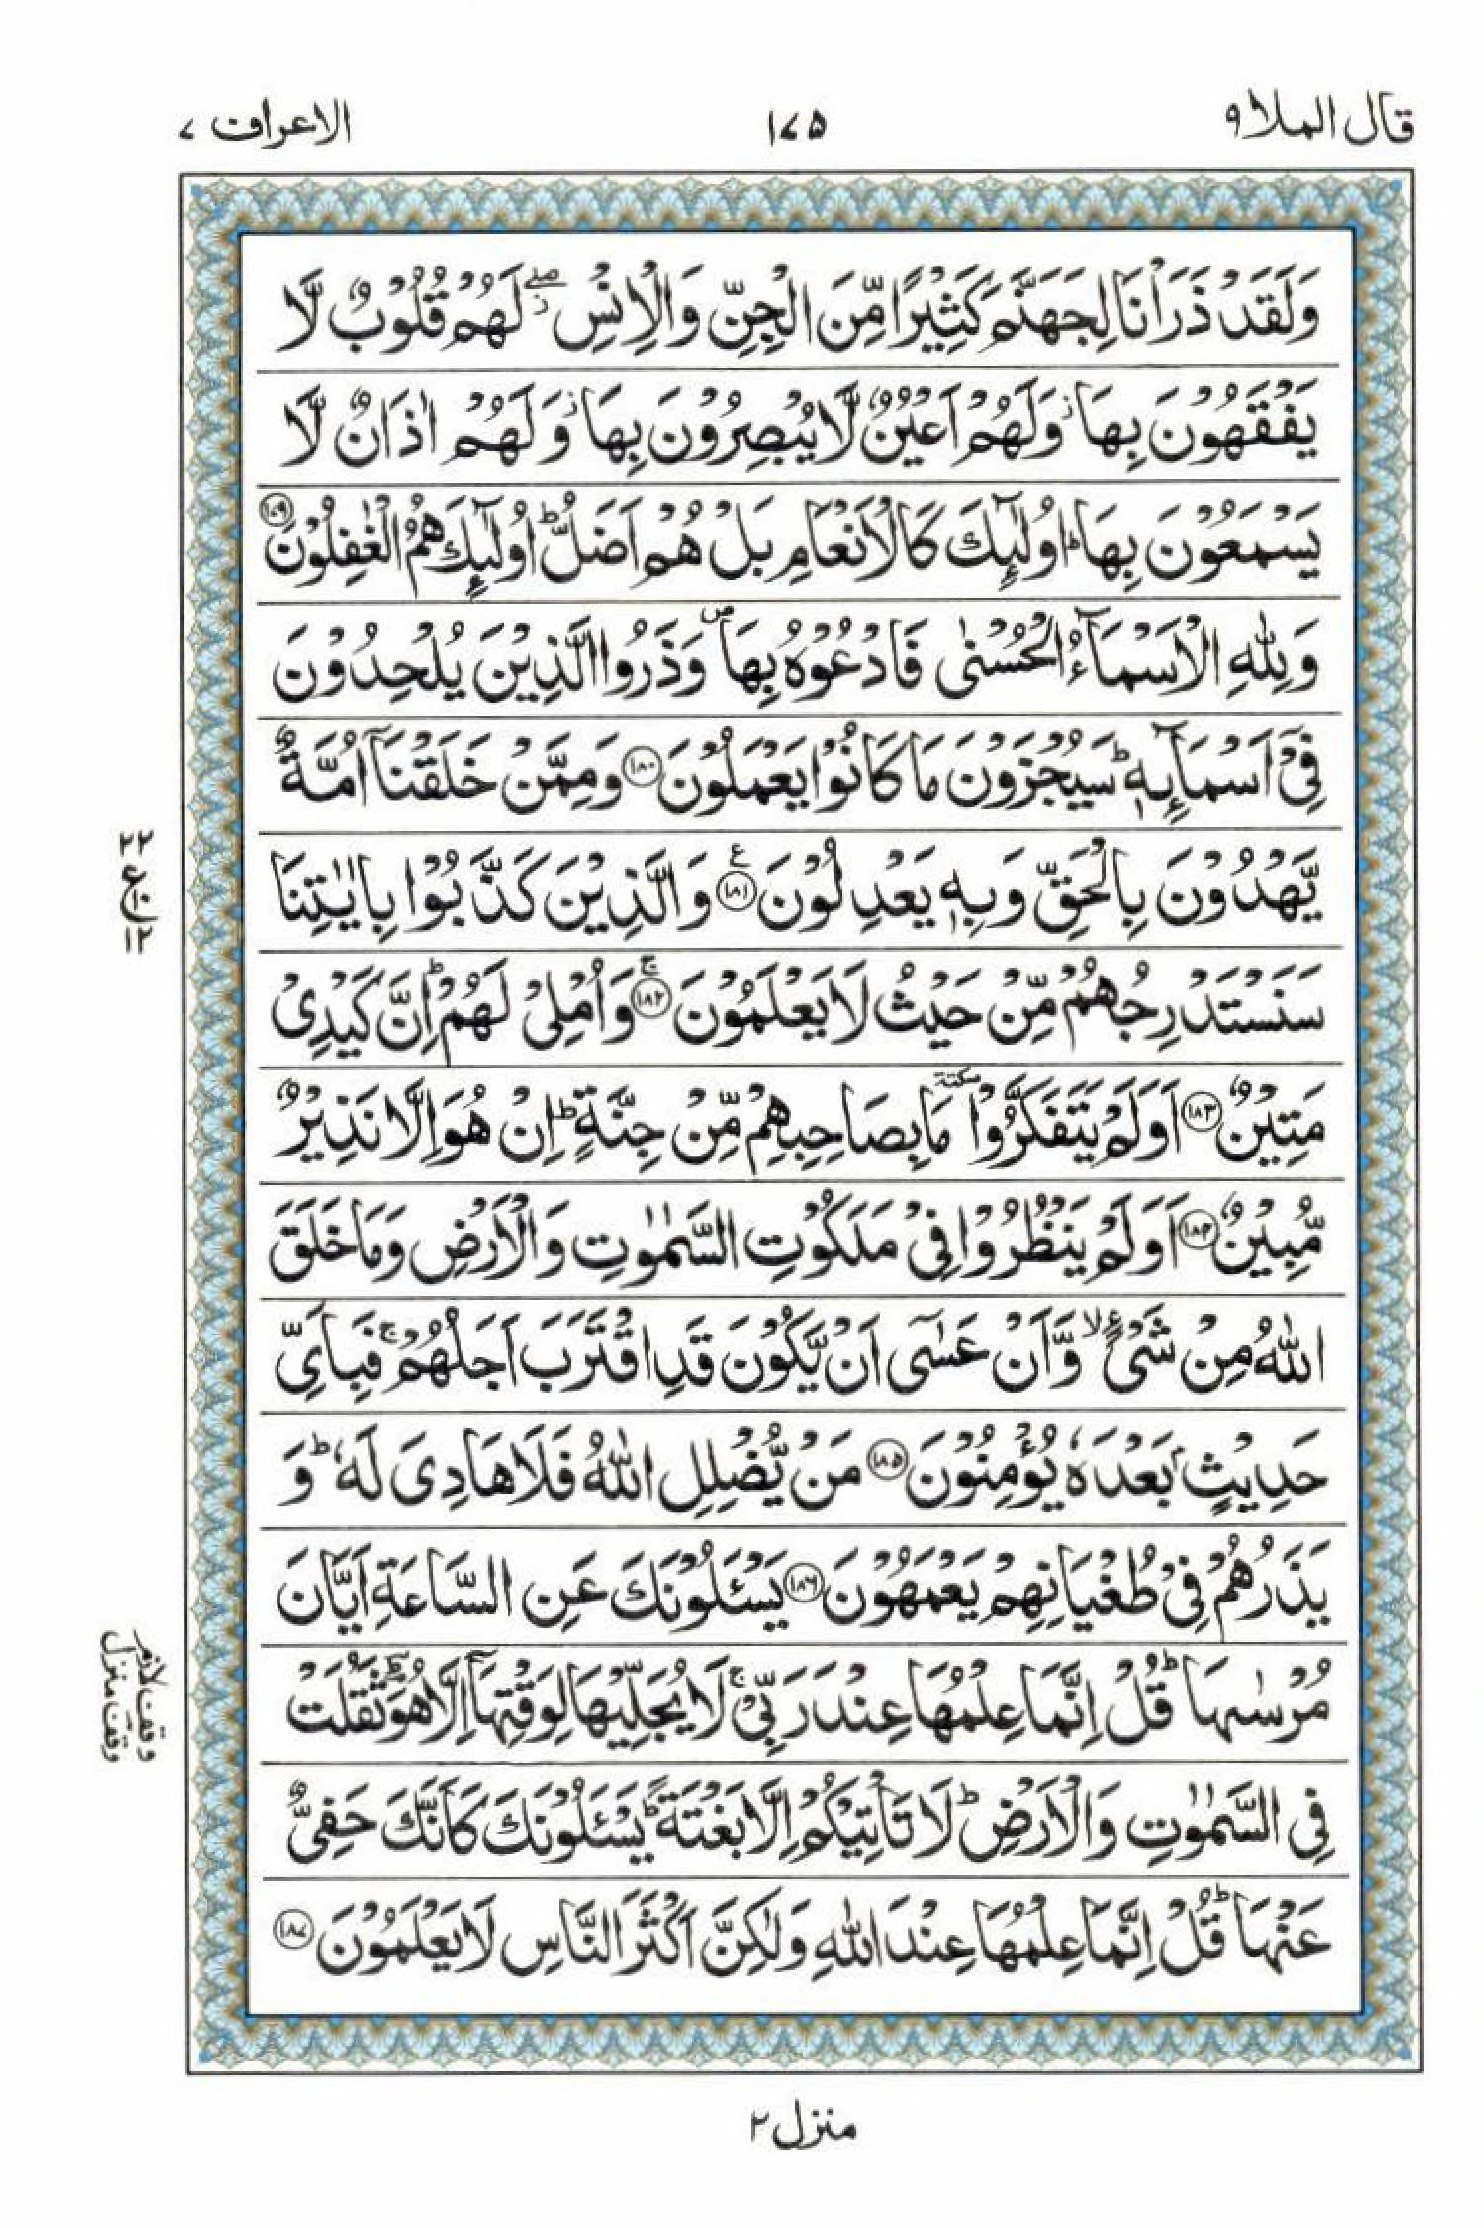 قال الملا ٩
١٧٥
الاعراف ٧
وَلَقَدْ ذَرَاْنَا لِجَهَنَّمَ كَثِيْرًا مِّنَ الْجِنِّ وَالْاِنْسِ ۖز لَهُمْ قُلُوْبٌ لَّا
يَفْقَهُوْنَ بِهَا ز وَلَهُمْ اَعْيُنٌ لَّا يُبْصِرُوْنَ بِهَا ز وَلَهُمْ اٰذَانٌ لَّا
يَسْمَعُوْنَ بِهَا ؕ اُولٰٓئِكَ كَالْاَنْعَامِ بَلْ هُمْ اَضَلُّ ؕ اُولٰٓئِكَ هُمُ الْغٰفِلُوْنَ ١٧٩
وَلِلّٰهِ الْاَسْمَآءُ الْحُسْنٰى فَادْعُوْهُ بِهَا ص وَذَرُوا الَّذِيْنَ يُلْحِدُوْنَ
فِيْٓ اَسْمَآئِهٖ ؕ سَيُجْزَوْنَ مَا كَانُوْا يَعْمَلُوْنَ ١٨٠ وَمِمَّنْ خَلَقْنَآ اُمَّةٌ
يَّهْدُوْنَ بِالْحَقِّ وَبِهٖ يَعْدِلُوْنَ ١٨١ ع وَالَّذِيْنَ كَذَّبُوْا بِاٰيٰتِنَا
سَنَسْتَدْرِجُهُمْ مِّنْ حَيْثُ لَا يَعْلَمُوْنَ ١٨٢ ج وَاُمْلِيْ لَهُمْ ؕ اِنَّ كَيْدِيْ
مَتِيْنٌ ١٨٣ اَوَلَمْ يَتَفَكَّرُوْا سكتة مَا بِصَاحِبِهِمْ مِّنْ جِنَّةٍ ؕ اِنْ هُوَ اِلَّا نَذِيْرٌ
مُّبِيْنٌ ١٨٤ اَوَلَمْ يَنْظُرُوْا فِيْ مَلَكُوْتِ السَّمٰوٰتِ وَالْاَرْضِ وَمَا خَلَقَ
اللّٰهُ مِنْ شَيْءٍ ۙ وَّاَنْ عَسٰٓى اَنْ يَّكُوْنَ قَدِ اقْتَرَبَ اَجَلُهُمْ ۚ فَبِاَيِّ
حَدِيْثٍۭ بَعْدَهٗ يُؤْمِنُوْنَ ١٨٥ مَنْ يُّضْلِلِ اللّٰهُ فَلَا هَادِيَ لَهٗ ؕ وَ
يَذَرُهُمْ فِيْ طُغْيَانِهِمْ يَعْمَهُوْنَ ١٨٦ يَسْـَٔلُوْنَكَ عَنِ السَّاعَةِ اَيَّانَ
مُرْسٰىهَا ؕ قُلْ اِنَّمَا عِلْمُهَا عِنْدَ رَبِّيْ ۚ لَا يُجَلِّيْهَا لِوَقْتِهَآ اِلَّا هُوَ ؔؕ ثَقُلَتْ
فِي السَّمٰوٰتِ وَالْاَرْضِ ؕ لَا تَاْتِيْكُمْ اِلَّا بَغْتَةً ؕ يَسْـَٔلُوْنَكَ كَاَنَّكَ حَفِيٌّ
عَنْهَا ؕ قُلْ اِنَّمَا عِلْمُهَا عِنْدَ اللّٰهِ وَلٰكِنَّ اَكْثَرَ النَّاسِ لَا يَعْلَمُوْنَ ١٨٧
٢٢
ع ١٠
١٢
وقف لازم
وقف منزل
منزل ٢